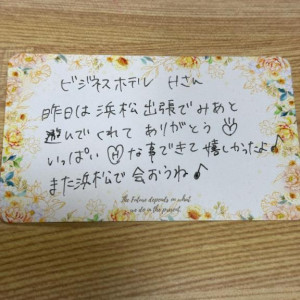 ビジネスホテル Hさん
昨日は浜松出張でみあと
遊んでくれてありがとう♡
いっぱいHな事できて嬉しかったよ♪
また浜松で会おうね♪
The Future depends on what
we do in the present.